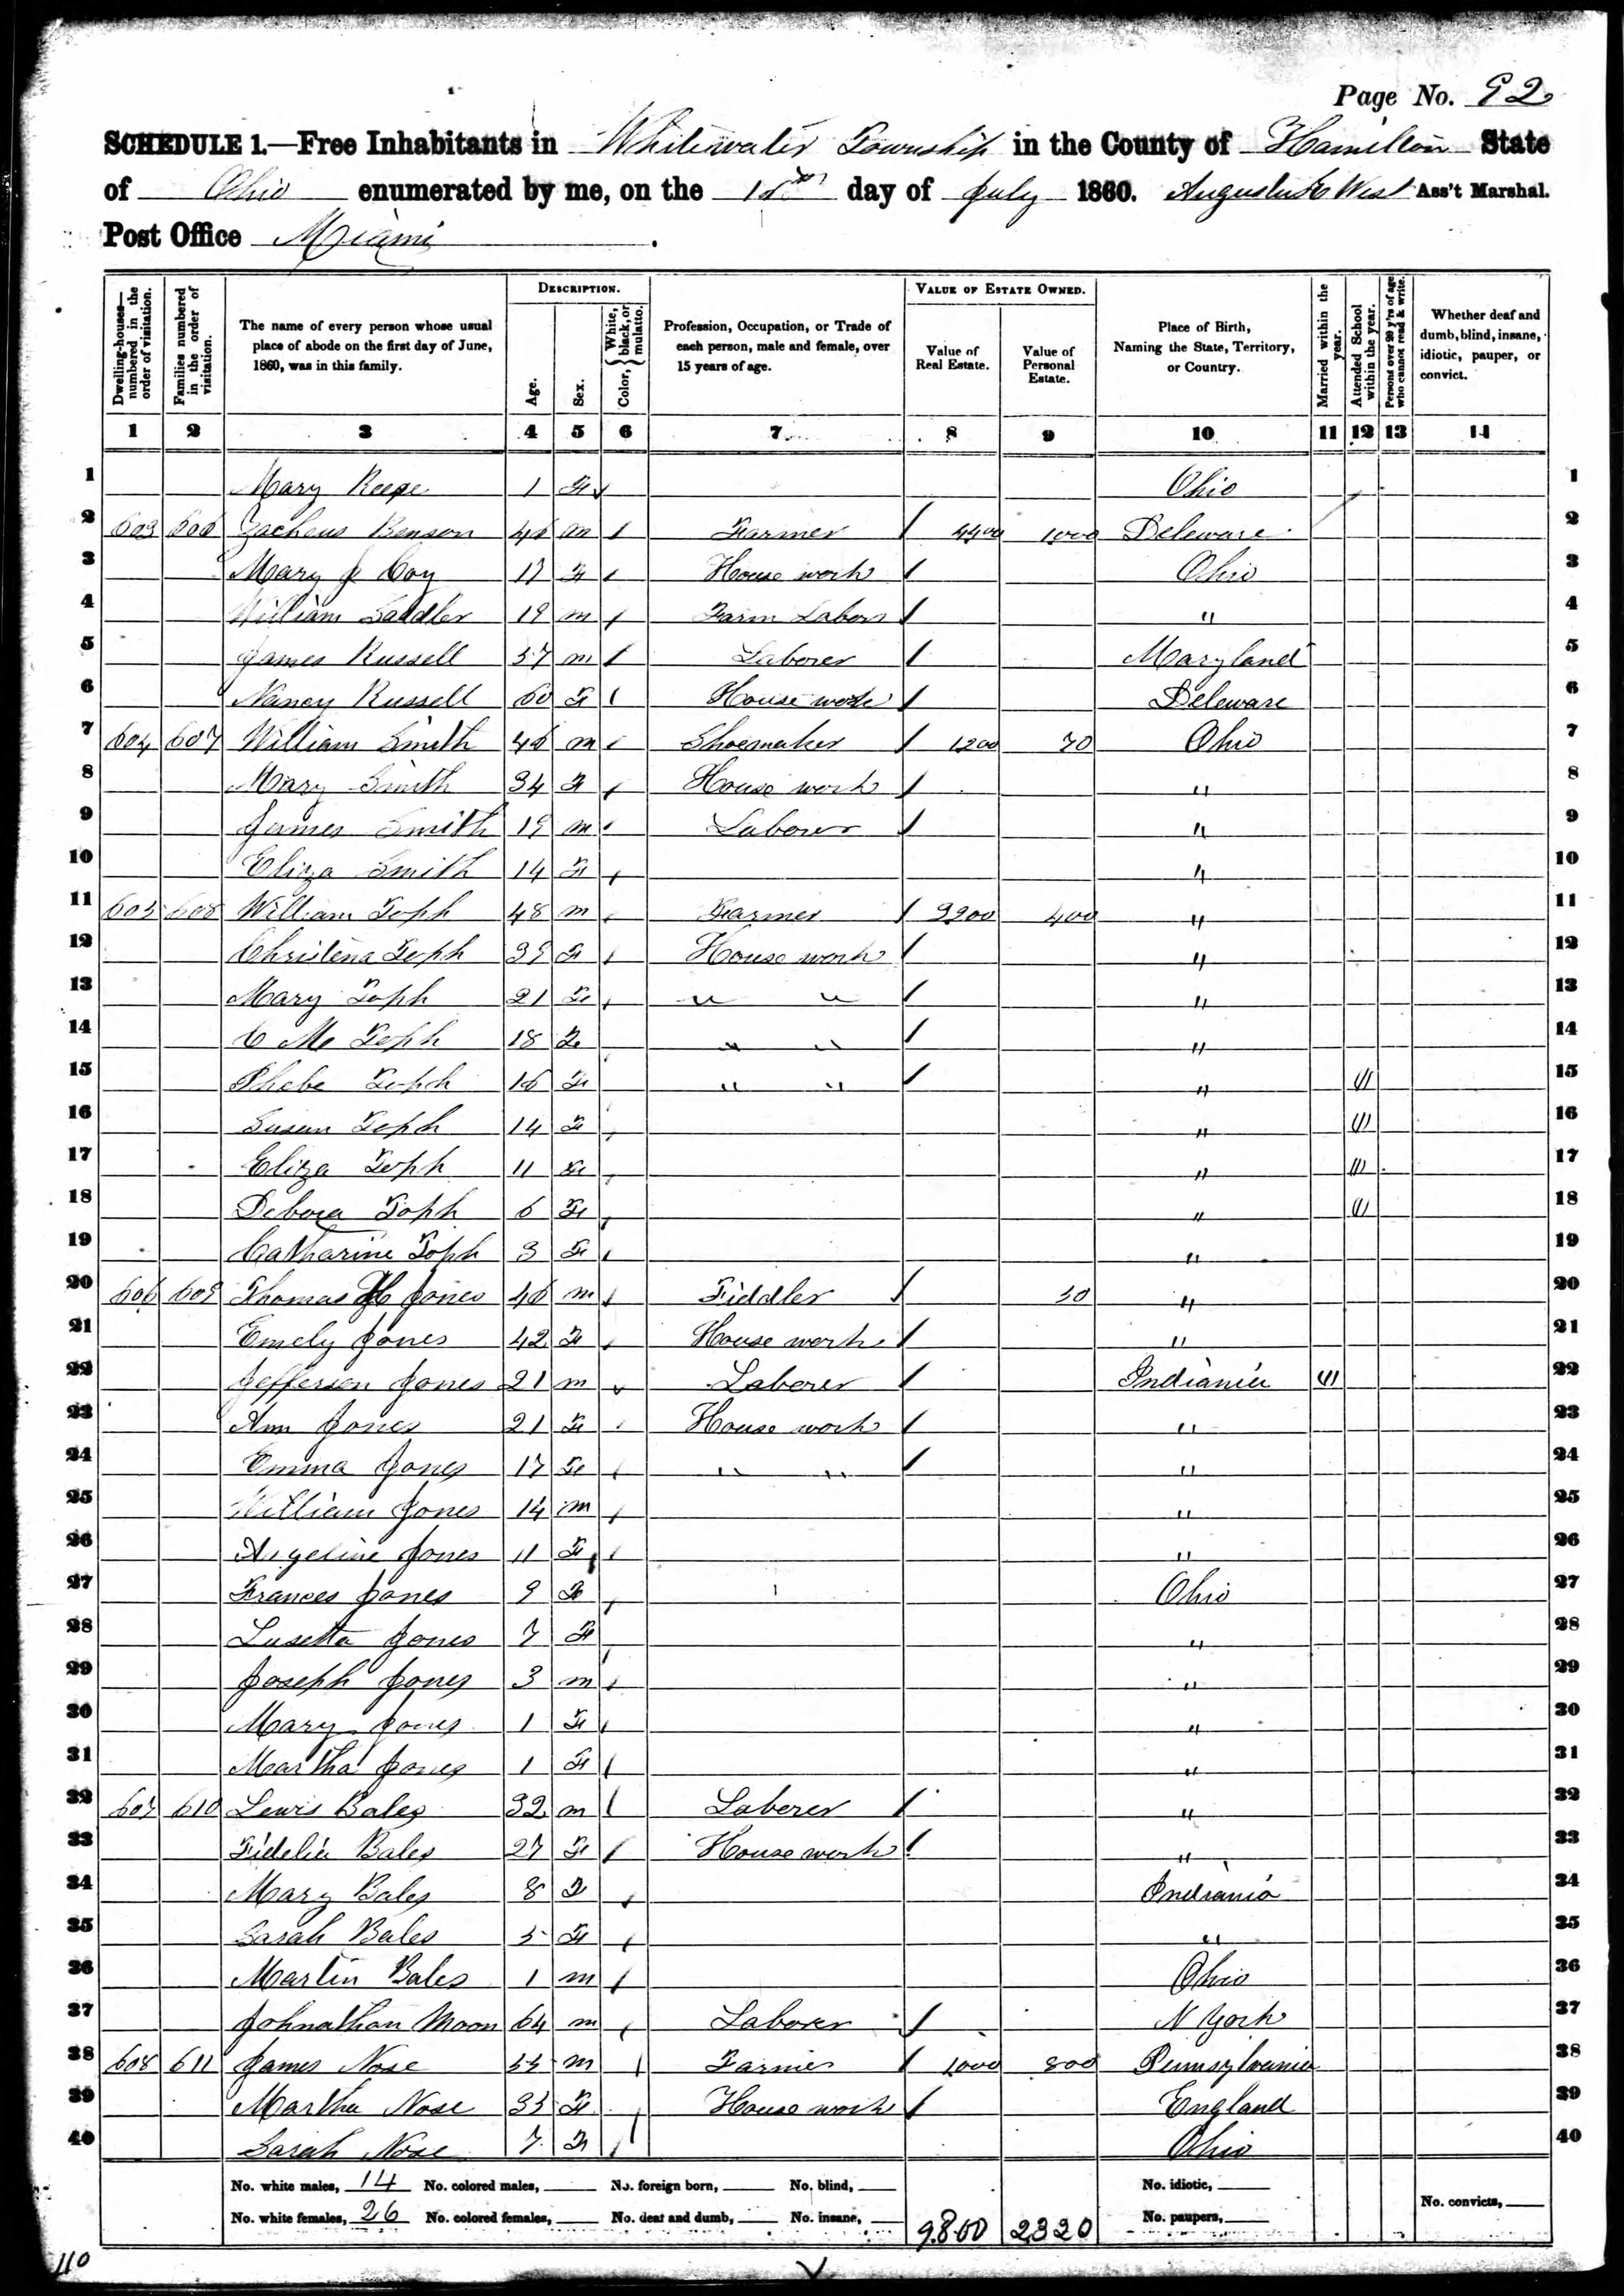 Page No. 92
SCHEDULE 1.—Free Inhabitants in Whitewater Township in the County of Hamilton State
of Ohio enumerated by me, on the day of July 1860. Augustus West Ass't Marshal.
Post Office Miami.
Dwelling-houses—numbered in the order of visitation.
Families numbered in the order of visitation.
The name of every person whose usual place of abode on the first day of June, 1860, was in this family.
DESCRIPTION.
Age.
Sex.
Color, { White, black, or mulatto. }
Profession, Occupation, or Trade of each person, male and female, over 15 years of age.
VALUE OF ESTATE OWNED.
Value of Real Estate.
Value of Personal Estate.
Place of Birth, Naming the State, Territory, or Country.
Married within the year.
Attended School within the year.
Persons over 20 y'rs of age who cannot read & write.
Whether deaf and dumb, blind, insane, idiotic, pauper, or convict.
1 2 3 4 5 6 7 8 9 10 11 12 13 14
1 Mary Reese 1 F Ohio 1
2 603 606 Zacheus Benson 46 m Farmer / 4400 1000 Deleware 2
3 Mary J Coy 17 F House work / Ohio 3
4 William Saddler 19 m Farm Labor / " 4
5 James Russell 57 m Laborer / Maryland 5
6 Nancy Russell 60 F House work / Deleware 6
7 604 607 William Smith 46 m Shoemaker / 1200 70 Ohio 7
8 Mary Smith 34 F House work / " 8
9 James Smith 19 m Laborer / " 9
10 Eliza Smith 14 F " 10
11 605 608 William Toph 48 m Farmer / 3200 400 " 11
12 Christena Toph 39 F House work / " 12
13 Mary Toph 21 F " " / " 13
14 C M Toph 18 F " " / " 14
15 Phebe Toph 16 F " " / " /// 15
16 Susan Toph 14 F " /// 16
17 Eliza Toph 11 F " /// 17
18 Debora Toph 6 F " /// 18
19 Catharine Toph 3 F " 19
20 606 609 Thomas H Jones 46 m Fiddler / 50 " 20
21 Emely Jones 42 F House work / " 21
22 Jefferson Jones 21 m Laborer / Indiania /// 22
23 Ann Jones 21 F House work / " 23
24 Emma Jones 17 F " " / " 24
25 William Jones 14 m " 25
26 Angeline Jones 11 F " 26
27 Frances Jones 9 F Ohio 27
28 Lusetta Jones 7 F " 28
29 Joseph Jones 3 m " 29
30 Mary Jones 1 F " 30
31 Martha Jones 1 F " 31
32 607 610 Lewis Bales 32 m Laborer / " 32
33 Fidelia Bales 27 F House work / " 33
34 Mary Bales 8 F Indiania 34
35 Sarah Bales 5 F " 35
36 Martin Bales 1 m Ohio 36
37 Johnathan Moon 64 m Laborer / N York 37
38 608 611 James Nose 55 m Farmer / 1000 800 Pennsylvania 38
39 Martha Nose 35 F House work / England 39
40 Sarah Nose 7 F Ohio 40
No. white males, 14 No. colored males, No. foreign born, No. blind, No. idiotic,
No. white females, 26 No. colored females, No. deaf and dumb, No. insane, 9800 2320 No. paupers, No. convicts,
110